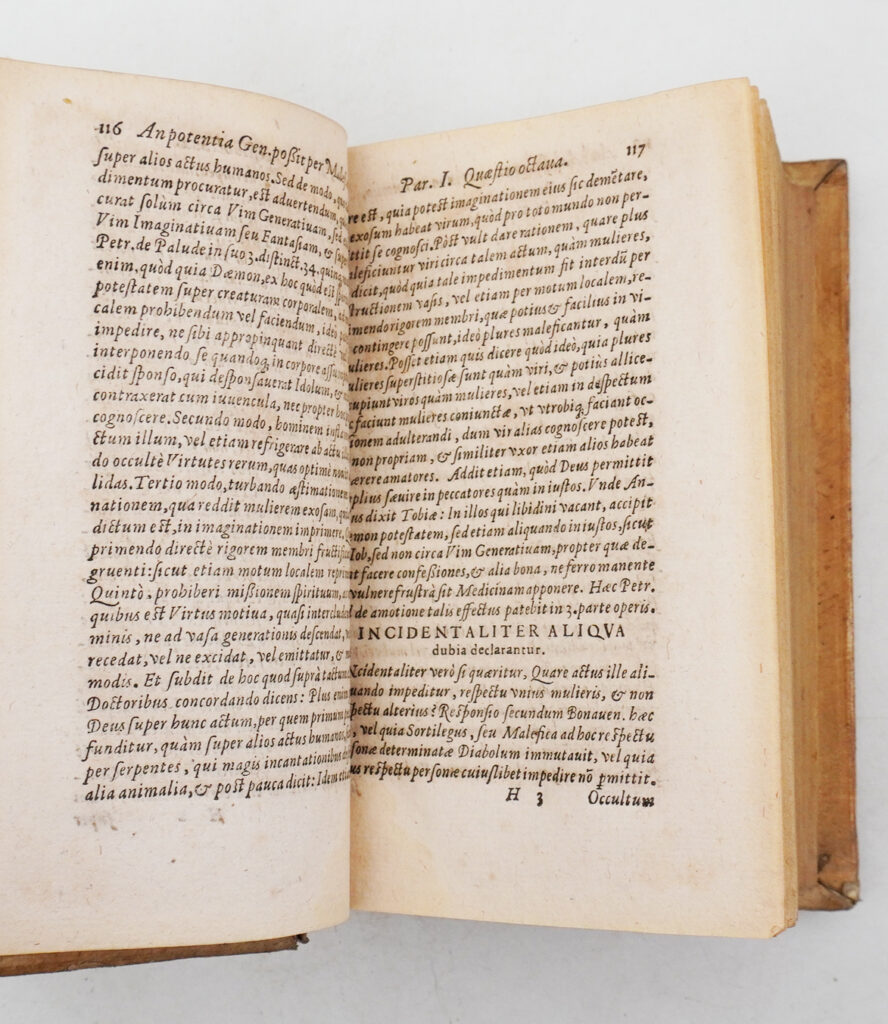 116 An potentia Gen. poßit per
super alios actus humanos. Sed de modo,
dimentum procuratur, est aduertendum,
curat solùm circa Vim Generatiuam, sed
Vim Imaginatiuam seu Fantasiam, &
Petr. de Palude in suo 3. distinct. 34.
enim, quòd quia Dæmon, ex hoc quòd est
potestatem super creaturam corporalem,
calem prohibendum vel faciendum, ideò
impedire, ne sibi appropinquant directè
interponendo se quandoq; in corpore
cidit sponso, qui desponsauerat Idolum, &
contraxerat cum iuuencula, nec propter hoc
cognoscere. Secundo modo, hominem
ctum illum, vel etiam refrigerare ab actu
do occultè Virtutes rerum, quas optimè
lidas. Tertio modo, turbando æstimationem
nationem, qua reddit mulierem exosam,
dictum est, in imaginationem imprimere,
primendo directè rigorem membri
gruenti: sicut etiam motum localem
Quintò, prohiberi mißionem spirituum,
quibus est Virtus motiua, quasi
minis, ne ad vasa generationis descendat,
recedat, vel ne excidat, vel emittatur, &
modis. Et subdit de hoc quod suprà tactum
Doctoribus concordando dicens: Plus enim
Deus super hunc actum, per quem primum
funditur, quàm super alios actus humanos,
per serpentes, qui magis incantationibus
alia animalia, & post pauca dicit: Idem
Par. I. Quæstio octaua. 117
re est, quia potest imaginationem eius sic demētare,
exosum habeat virum, quòd pro toto mundo non per-
ttit se cognosci. Pòst vult dare rationem, quare plus
leficiuntur viri circa talem actum, quàm mulieres,
dicit, quòd quia tale impedimentum fit interdū per
tructionem vasis, vel etiam per motum localem, re-
imendo rigorem membri, quæ potius & facilius in vi-
contingere possunt, ideò plures maleficantur, quàm
ulieres. Posset etiam quis dicere quòd ideò, quia plures
ulieres superstitiosæ sunt quàm viri, & potiùs allice-
upiunt viros quàm mulieres, vel etiam in despectum
c faciunt mulieres coniunctæ, vt vtrobiq; faciant oc-
ionem adulterandi, dum vir alias cognoscere potest,
non propriam, & similiter vxor etiam alios habeat
ærere amatores. Addit etiam, quòd Deus permittit
plius sæuire in peccatores quàm in iustos. Vnde An-
us dixit Tobiæ: In illos qui libidini vacant, accipit
emon potestatem, sed etiam aliquando in iustos, sicut
Iob, sed non circa Vim Generatiuam, propter quæ de-
t facere confeßiones, & alia bona, ne ferro manente
vulnere frustrà sit Medicinam apponere. Hæc Petr.
de amotione talis effectus patebit in 3. parte operis.
INCIDENTALITER ALIQVA
dubia declarantur.
Ncidentaliter verò si quæritur, Quare actus ille ali-
uando impeditur, respectu vnius mulieris, & non
pectu alterius? Responsio secundum Bonauen. hæc
, vel quia Sortilegus, seu Malefica ad hoc respectu
sonæ determinatæ Diabolum immutauit, vel quia
us respectu personæ cuiuslibet impedire nō p̄mittit.
H 3 Occultum